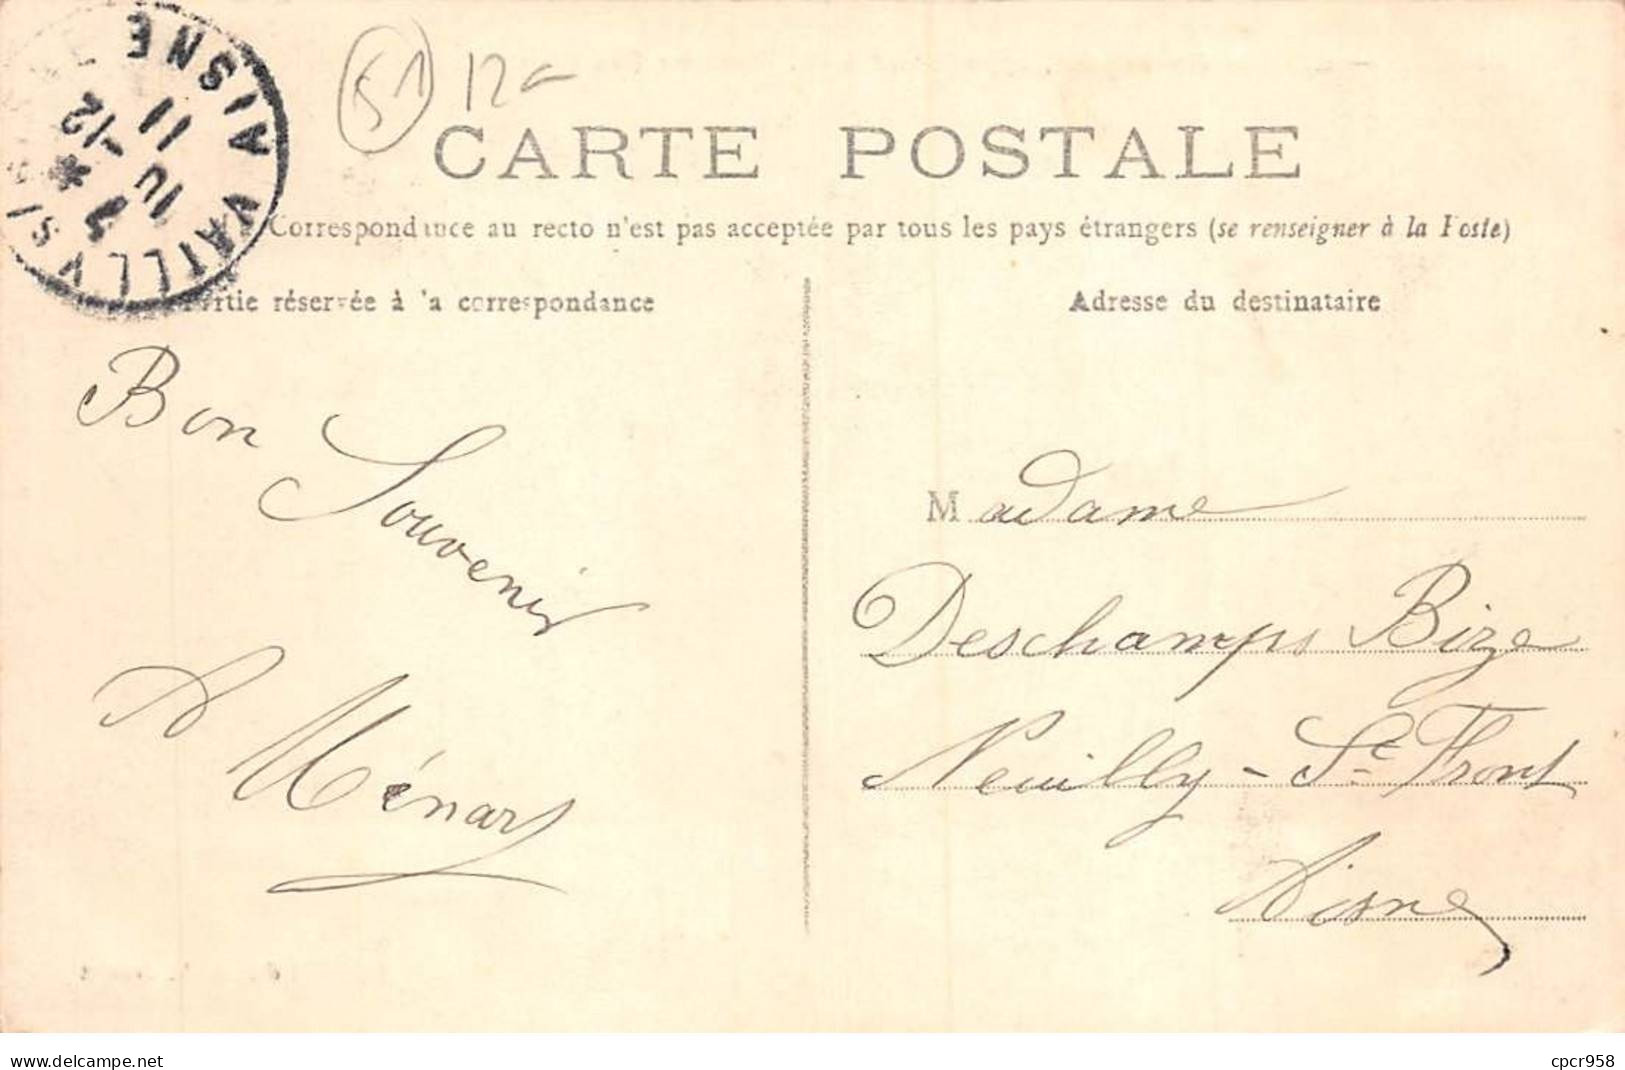 AISNE
VAILLY S/
11
-12
10
*
51 12
CARTE POSTALE
Correspondance au recto n'est pas acceptée par tous les pays étrangers (se renseigner à la Poste)
Partie réservée à la correspondance
Adresse du destinataire
Bon
Souvenir
A Ménard
Madame
Deschamps Bize
Neuilly-St Front
Aisne
delcampe.net
cpcr958